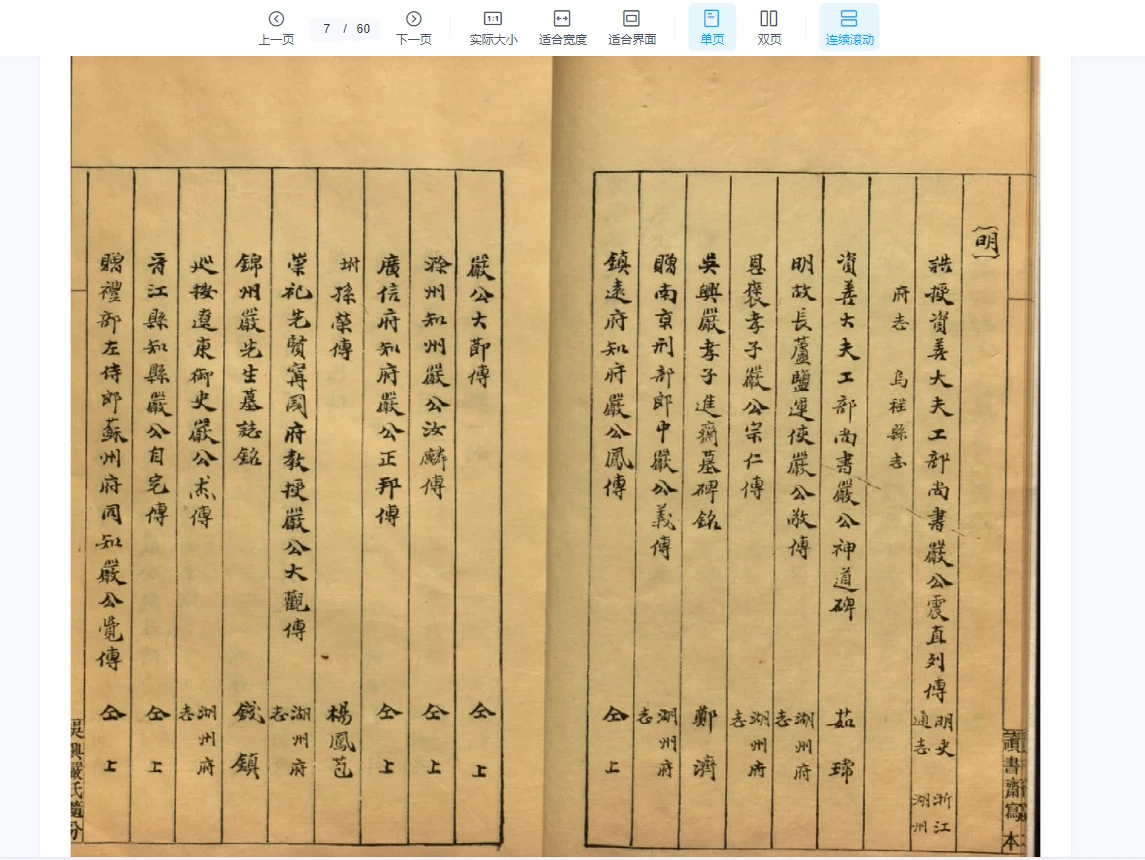 上一页
7 / 60
下一页
1:1
实际大小
适合宽度
适合界面
单页
双页
连续滚动
讀書齋寫本
明
誥授資善大夫工部尚書嚴公震直列傳 明史 浙江通志 湖州
府志 烏程縣志
資善大夫工部尚書嚴公神道碑 茹瑺
明故長蘆鹽運使嚴公敬傳 湖州府志
恩褒孝子嚴公宗仁傳 湖州府志
吳興嚴孝子進齋墓碑銘 鄭濟
贈南京刑部郎中嚴公義傳 湖州府志
鎮遠府知府嚴公鳳傳 仝上
嚴公大節傳 仝上
滁州知州嚴公汝麟傳 仝上
廣信府知府嚴公正邦傳 仝上
坿 孫榮傳 楊鳳苞
崇祀先賢寧國府教授嚴公大觀傳 湖州府志
錦州嚴先生墓誌銘 錢鎮
巡按遼東御史嚴公杰傳 湖州府志
晋江縣知縣嚴公自完傳 仝上
贈禮部左侍郎蘇州府同知嚴公覺傳 仝上
吳興嚴氏隨分